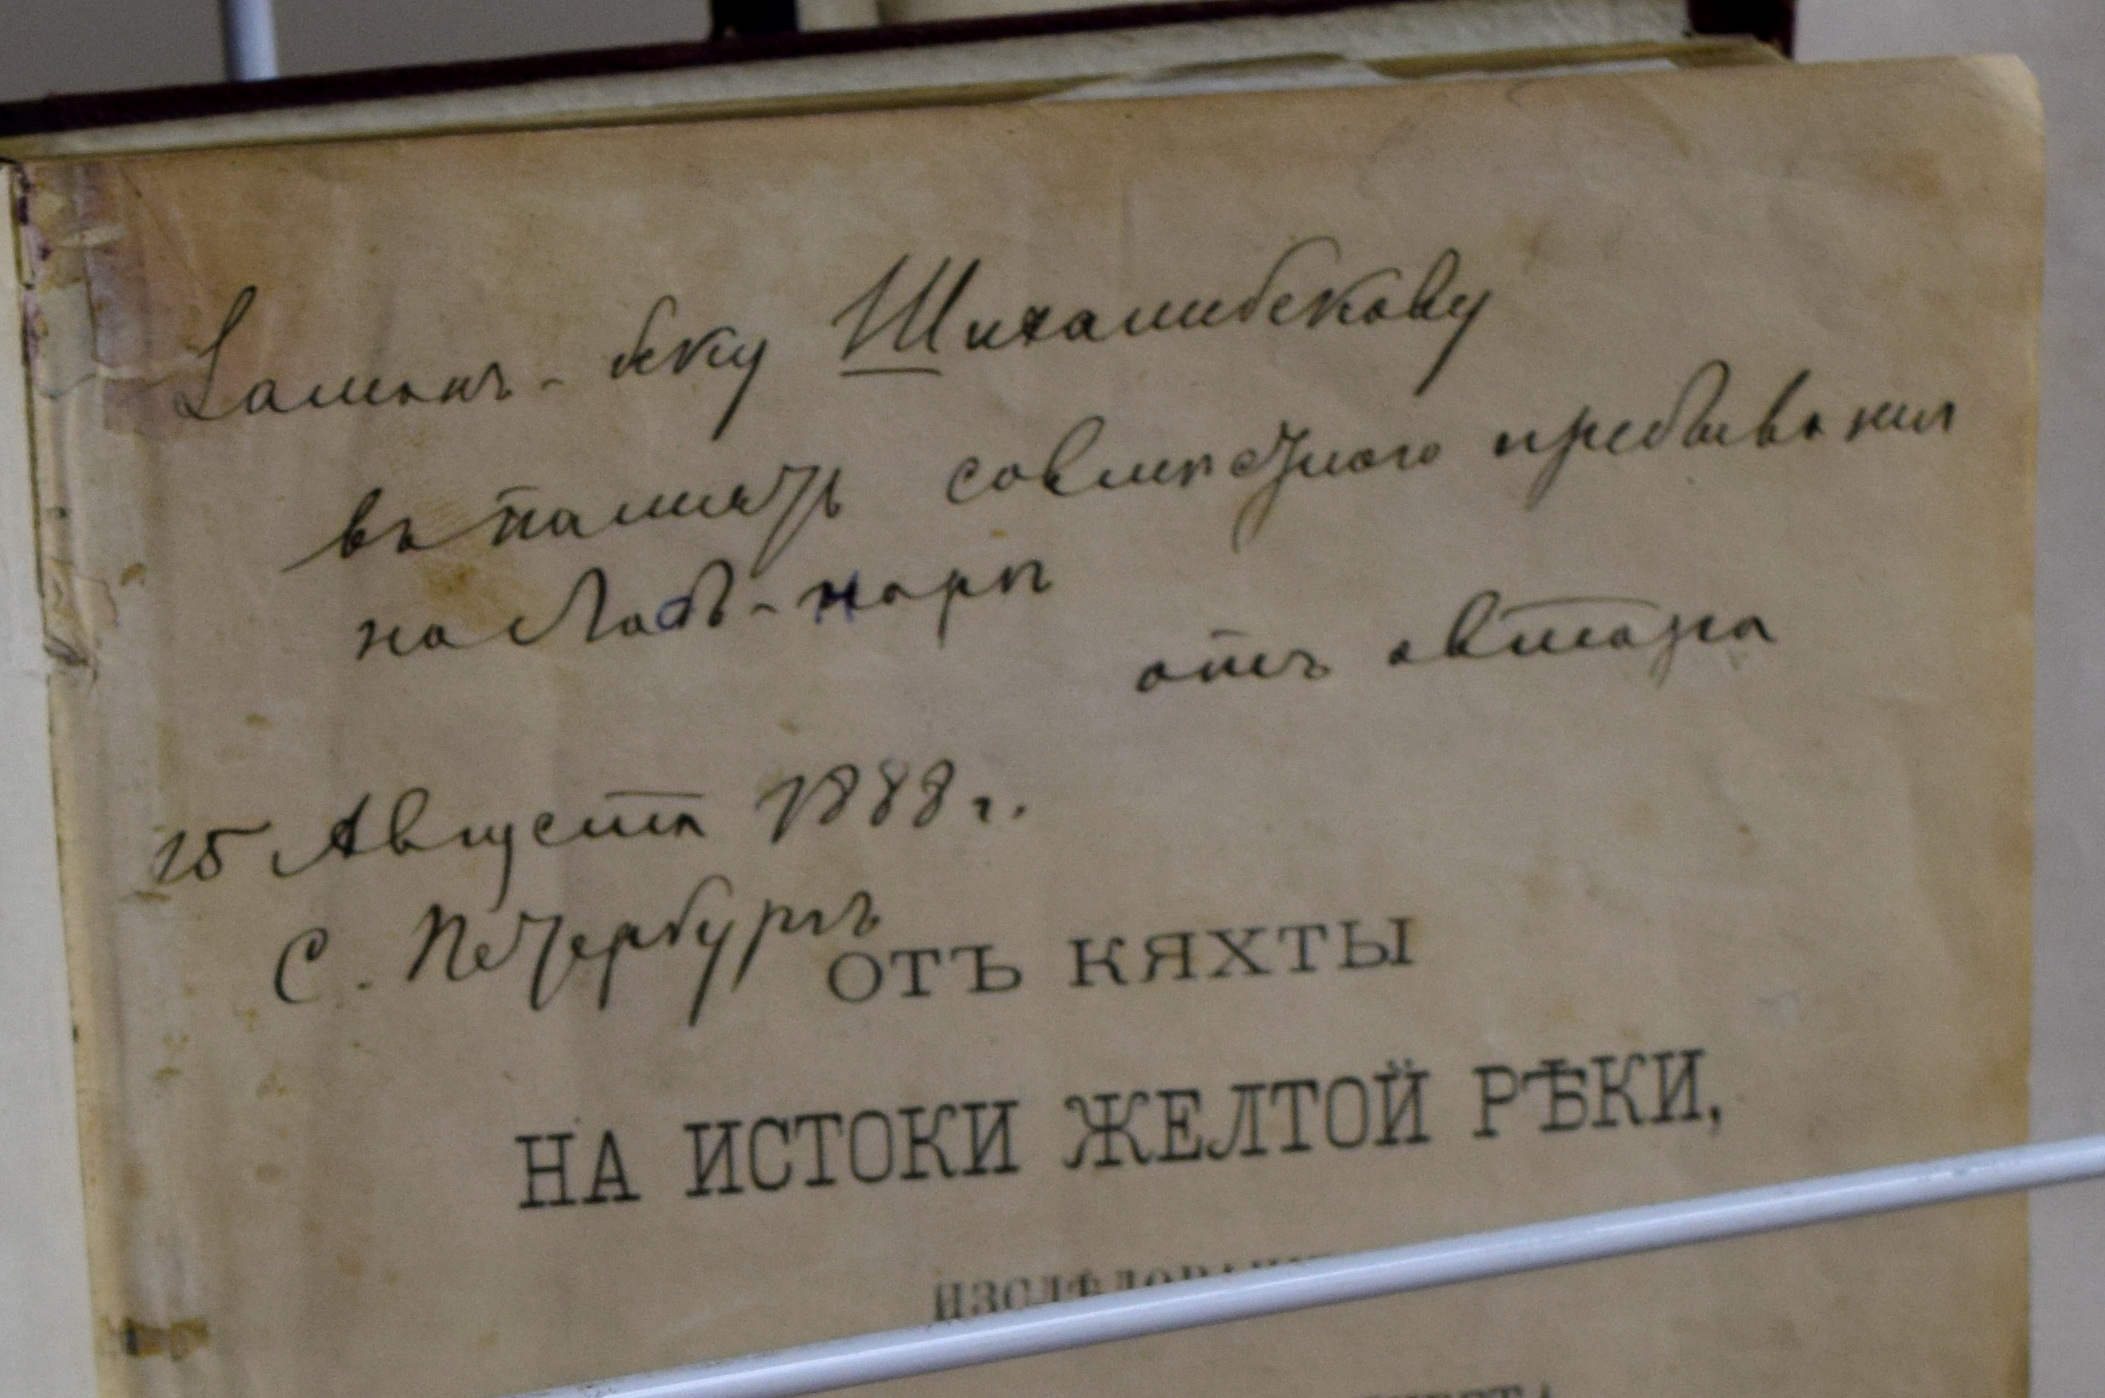 Заманъ-беку Шихалибекову
въ память совмѣстного пребыванія
на Лобъ-норѣ
отъ автора
15 Августа 1888 г.
С. Петербургъ
ОТЪ КЯХТЫ
НА ИСТОКИ ЖЕЛТОЙ РѢКИ,